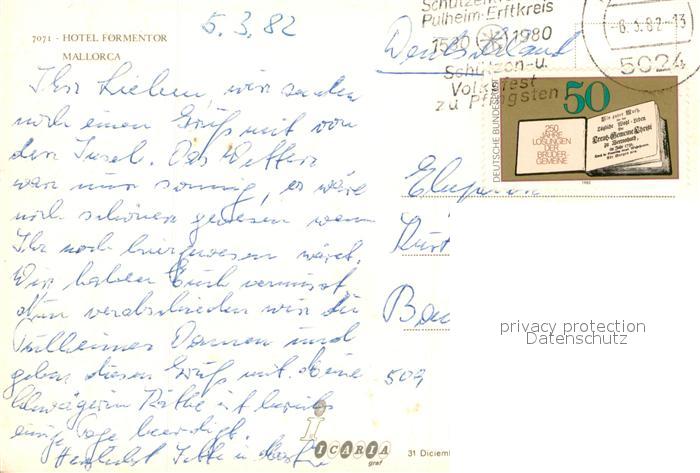 5.3.82
7071 - HOTEL FORMENTOR
MALLORCA
Ihr Lieben, wir senden
noch einen Gruß mit von
der Insel. Das Wetter
war nur sonnig, es wäre
noch schöner gewesen wenn
Ihr noch hiergewesen wäret.
Wir haben Euch vermisst.
Nun verabschieden wir die
Pulheimer Damen und
geben diesen Gruß mit. Deine
Schwägerin Käthe ist bereits
einige Tage beerdigt.
Herzlichst
ICARIA
graf
31 Diciem
Deutschland
Schützenkreis
Pulheim-Erftkreis
1580 1980
Schützen-u.
Volksfest
zu Pfingsten
-6.3.82-13
5024
DEUTSCHE BUNDESPOST
50
250
JAHRE
LOSUNGEN
DER
BRÜDER-
GEMEINE
1980
Ehepaar
Kurt
509
privacy protection
Datenschutz